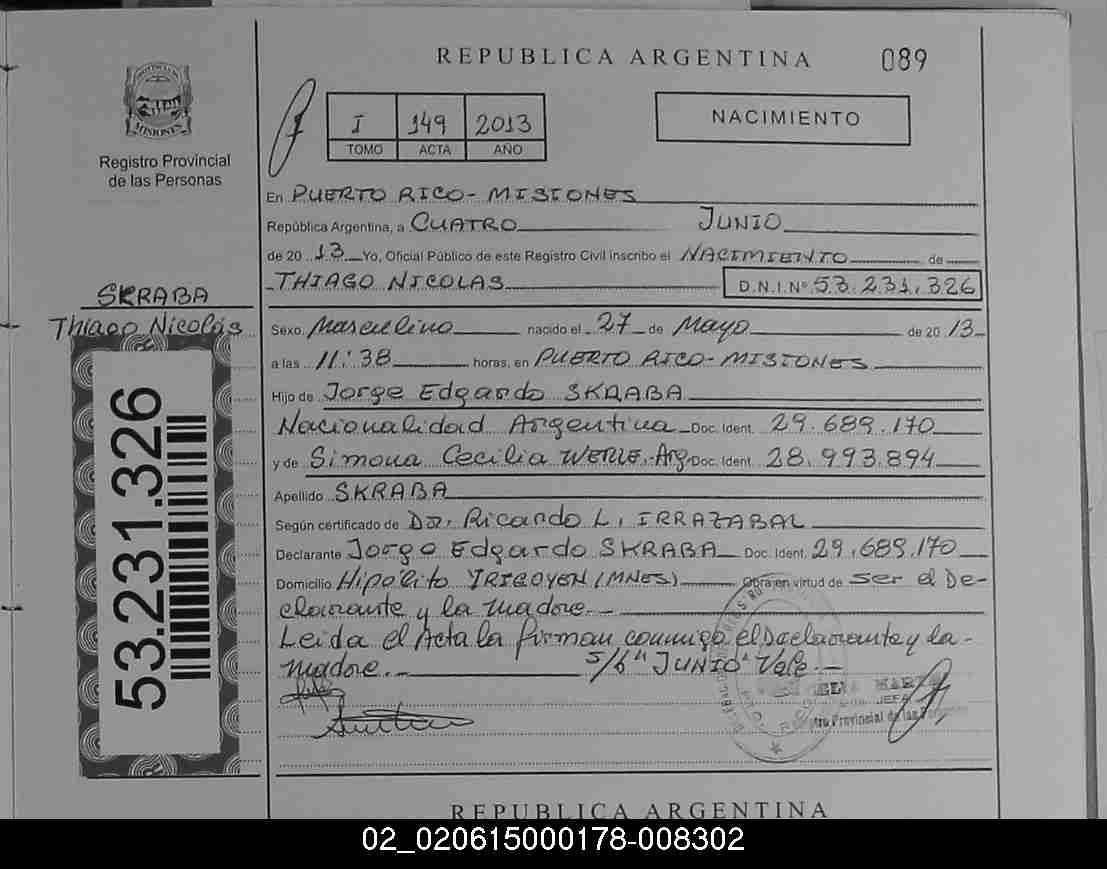 REPUBLICA ARGENTINA 089
I 149 2013
TOMO ACTA AÑO
NACIMIENTO
PROVINCIA DE MISIONES
Registro Provincial
de las Personas
En PUERTO RICO - MISIONES
República Argentina, a CUATRO JUNIO
de 20 13 Yo, Oficial Público de este Registro Civil inscribo el NACIMIENTO de
THIAGO NICOLAS D.N.I.Nº 53.231.326
SKRABA
Thiago Nicolás
53.231.326
Sexo Masculino nacido el 27 de Mayo de 20 13
a las 11:38 horas, en PUERTO RICO - MISIONES
Hijo de Jorge Edgardo SKRABA
Nacionalidad Argentina Doc. Ident. 29.689.170
y de Simona Cecilia WERLE - Arg Doc. Ident. 28.993.894
Apellido SKRABA
Según certificado de Dr. Ricardo L. IRRAZABAL
Declarante Jorge Edgardo SKRABA Doc. Ident. 29.689.170
Domicilio Hipólito YRIGOYEN (MNES) Obra en virtud de ser el De-
clarante y la madre.-
Leida el Acta la firman conmigo el Declarante y la
madre.- S/b "JUNIO" Vale.-
JEFA
Registro Provincial de las Personas
REPUBLICA ARGENTINA
02_020615000178-008302